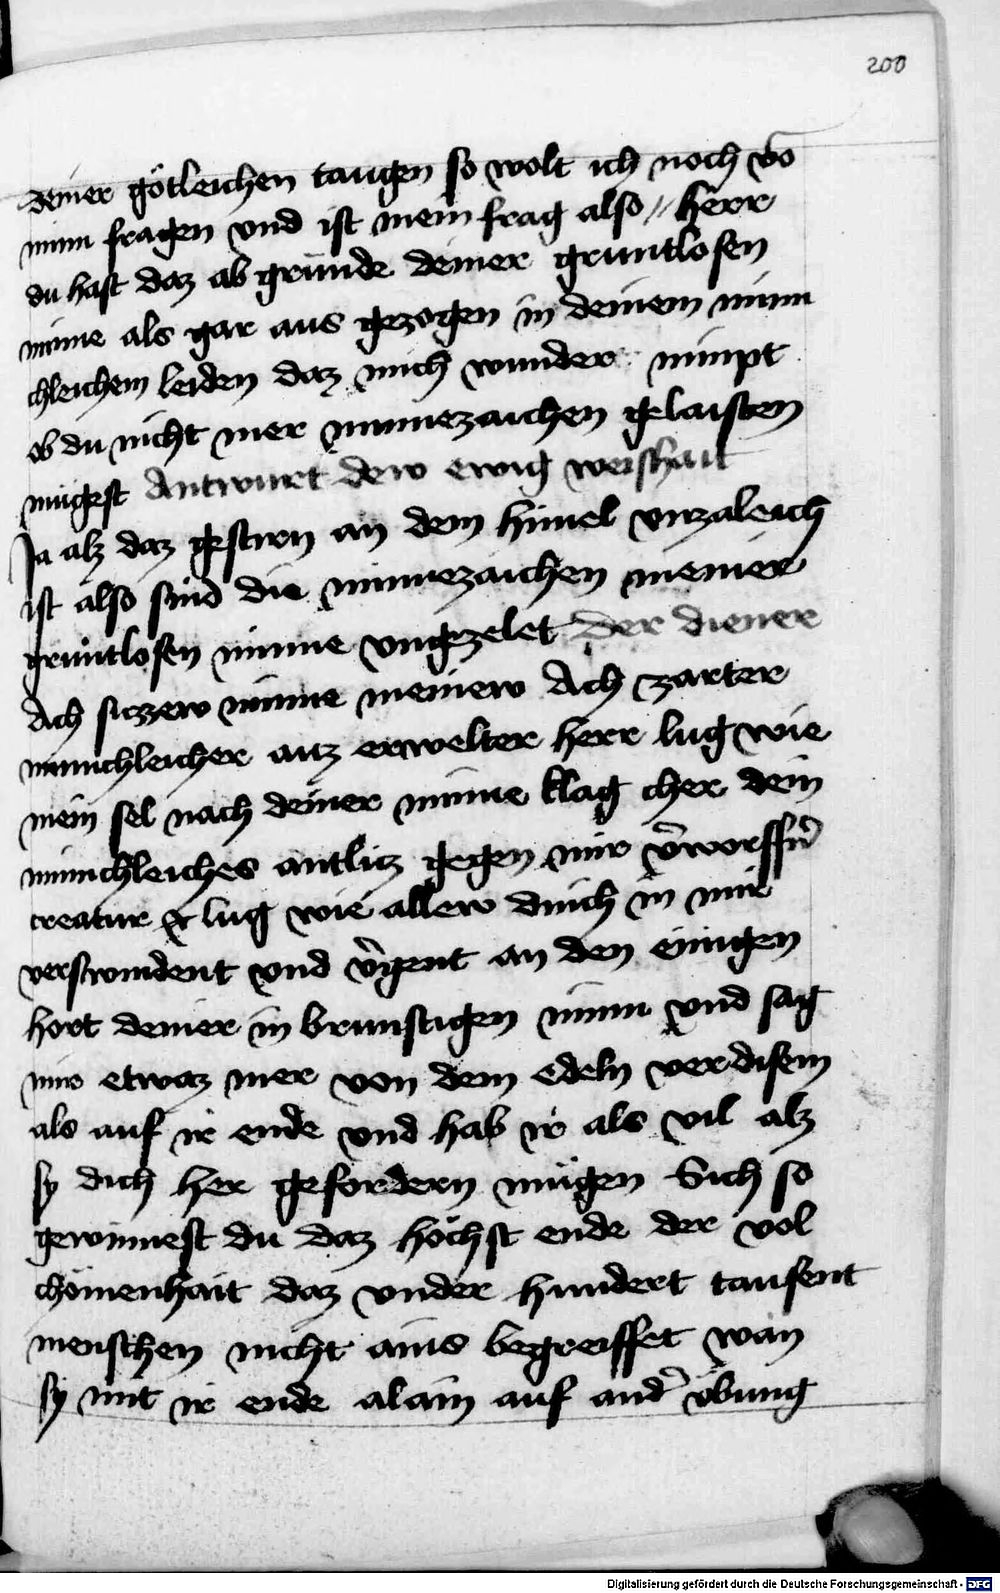 200
deiner götleichen taugen so wolt ich noch vō
minn fragen vnd ist mein frag also // herr
du hast daz ab gründe deiner gruntlosen
minne als gar aus gezogen in deinem minn
chleichem leiden daz mich wunder nimpt
ob du nicht mer minnezaichen gelaisten
mügest Antwurt dew ewig weishait
Ja alz daz gestirn an dem himel vnzaleich
ist also sind die minnezaichen meiner
gruntlosen minne vngezelet der diener
Ach süzzew minne meinew Ach zarter
minnchleicher auz erwelter herr lug wie
mein sel nach deiner minne klag cher dein
minnchleiches antlitz gegen mir v̄worffn̄
creatur & lug wie allew dinch in mir
verswindent vnd v̄gent an den einigen
hort deiner in brunstigen minn vnd sag
mir etwaz mer von dem edeln verdisem
als auf ir ende vnd hab ir als vil alz
sy dich her gefordern mügen Sich so
gewinnest du daz höchst ende der vol
chömenhait daz vnder hundert tausent
menschen nicht ains begreiffet wan
sy mit ir ende alain auf and̄ übung
Digitalisierung gefördert durch die Deutsche Forschungsgemeinschaft - DFG